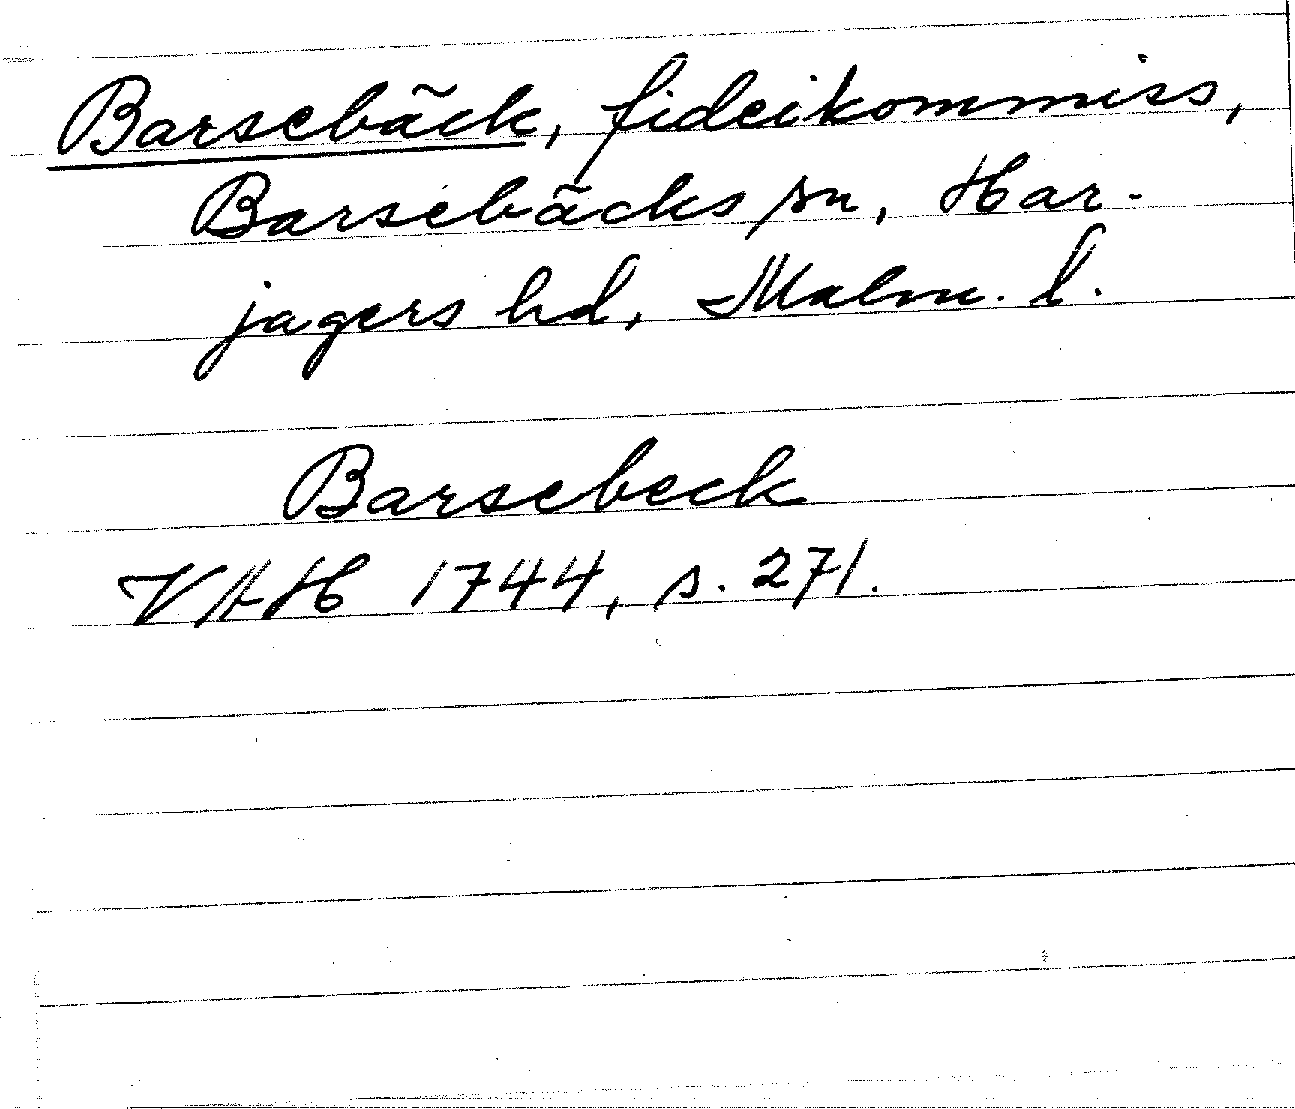 Barsebäck, fideikommiss,
Barsebäcks sn, Har-
jagers hd, Malm. l.
Barsebeck
VAH 1744, s. 271.